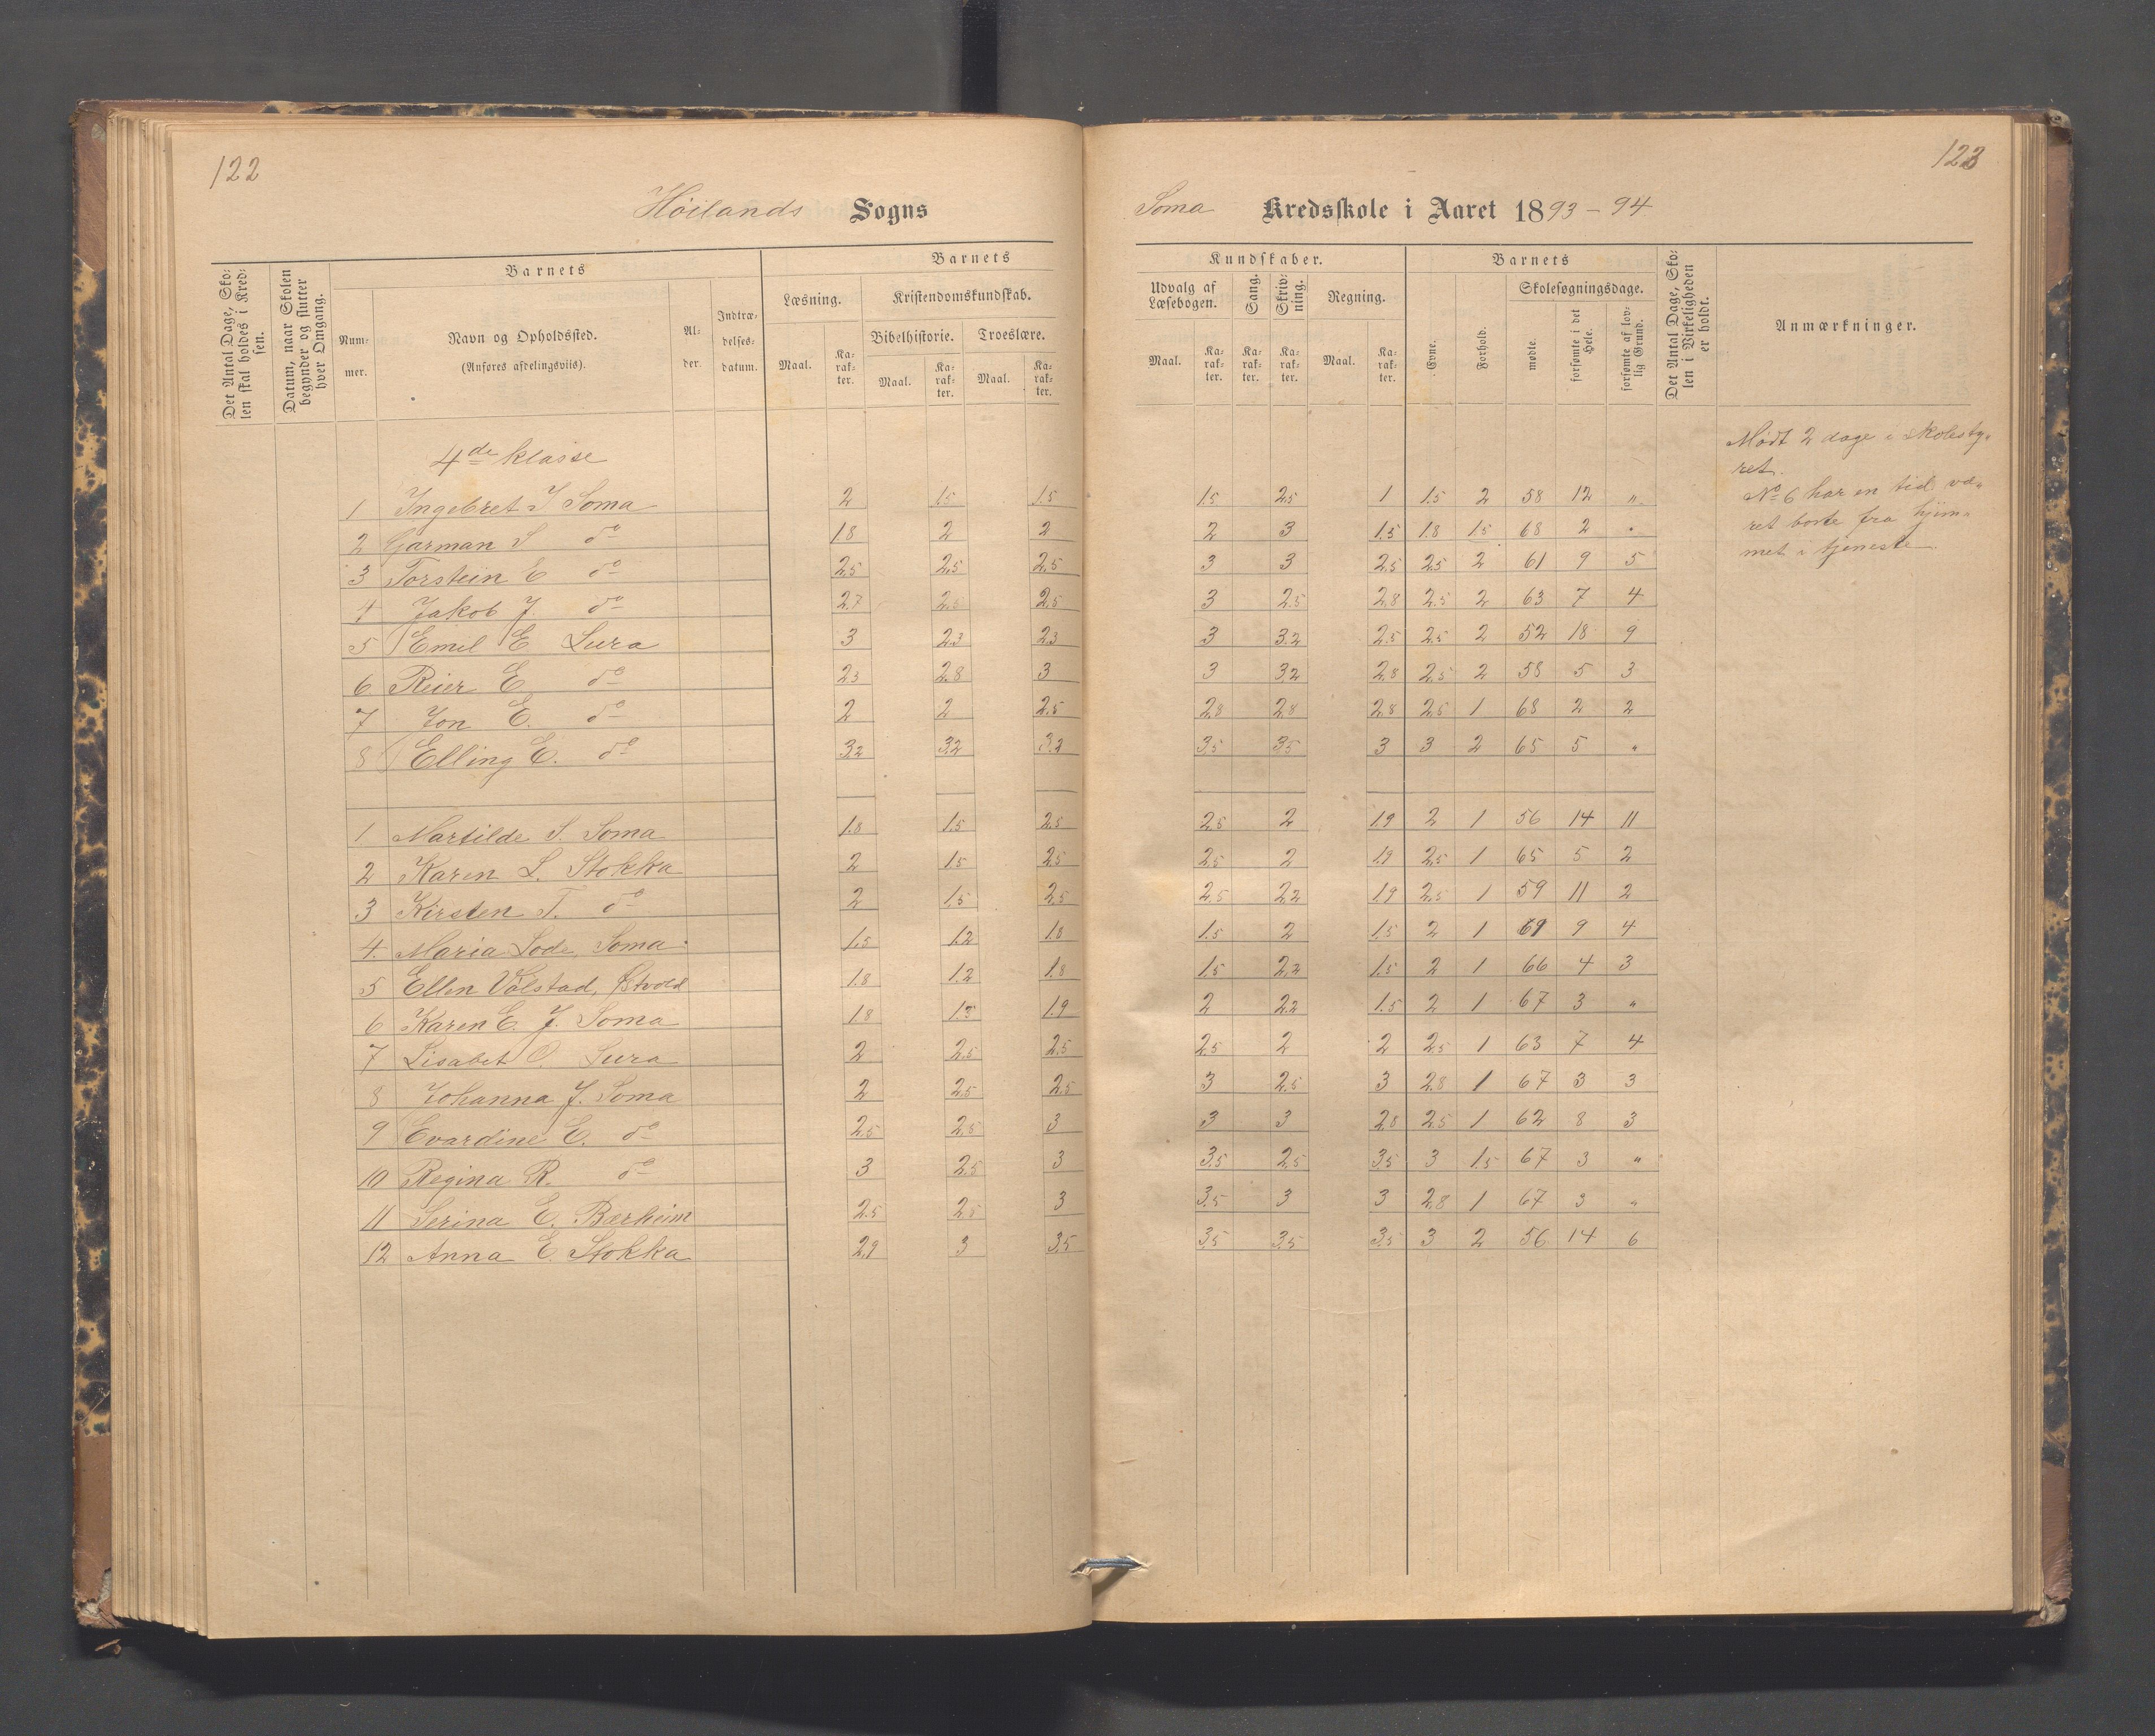 122
Höilands Sogns
Det Antal Dage, Skolen skal holdes i Kredsen.
Datum, naar Skolen begynder og slutter hver Omgang.
Barnets
Nummer.
Navn og Opholdssted.
(Anføres afdelingsviis).
Alder.
Indtrædelsesdatum.
Barnets
Læsning.
Kristendomskundskab.
Bibelhistorie.
Troeslære.
Maal. Karakter. Maal. Karakter. Maal. Karakter.
4de klasse
1 Ingebret J Soma 2 1.5 1.5
2 Garman S do 1.8 2 2
3 Torstein E do 2.5 2.5 2.5
4 Jakob J. do 2.7 2.5 2.5
5 Emil E Lura 3 2.3 2.3
6 Reier E do 2.3 2.8 3
7 Jon E. do 2 2 2.5
8 Elling E. do 3.2 3.2 3.2
1 Martilde S. Soma 1.8 1.5 2.5
2 Karen L. Stokka 2 1.5 2.5
3 Kirsten T. do 2 1.5 2.5
4. Maria Lode, Soma 1.5 1.2 1.8
5 Ellen Völstad, 1.8 1.2 1.8
6 Karen E. J. Soma 1.8 1.3 1.9
7 Lisabet O. Lura 2 2.5 2.5
8 Johanna J. Soma 2 2.5 2.5
9 Evardine E. do 2.5 2.5 3
10 Regina R. do 3 2.5 3
11 Serina E. Bærheim 2.5 2.5 3
12 Anna E. Stokka 2.9 3 3.5
123
Soma Kredsskole i Aaret 1893-94
Kundskaber.
Udvalg af Læsebogen.
Sang.
Skrivning.
Regning.
Maal. Karakter. Karakter. Karakter. Maal. Karakter.
Barnets
Evne.
Forhold.
Skolesøgningsdage.
mødte.
forsømte i det Hele.
forsømte af lovlig Grund.
Det Antal Dage, Skolen i Virkeligheden er holdt.
Anmærkninger.
1.5 2.5 1 1.5 2 58 12 "
2 3 1.5 1.8 1.5 68 2 "
3 3 2.5 2.5 2 61 9 5
3 2.5 2.8 2.5 2 63 7 4
3 3.2 2.5 2.5 2 52 18 9
3 3.2 2.8 2.5 2 58 5 3
2.8 2.8 2.8 2.5 1 68 2 2
3.5 3.5 3 3 2 65 5 "
2.5 2 1.9 2 1 56 14 11
2.5 2 1.9 2.5 1 65 5 2
2.5 2.2 1.9 2.5 1 59 11 2
1.5 2 1.5 2 1 61 9 4
1.5 2.2 1.5 2 1 66 4 3
2 2.2 1.5 2 1 67 3 "
2.5 2 2 2.5 1 63 7 4
3 2.5 3 2.8 1 67 3 3
3 3 2.8 2.5 1 62 8 3
3.5 2.5 3.5 3 1.5 67 3 "
3.5 3 3 2.8 1 67 3 "
3.5 3.5 3.5 3 2 56 14 6
Mödt 2 dage i skolesty-
ret.
No 6 har en tid væ-
ret borte fra hjem-
met i tjeneste.